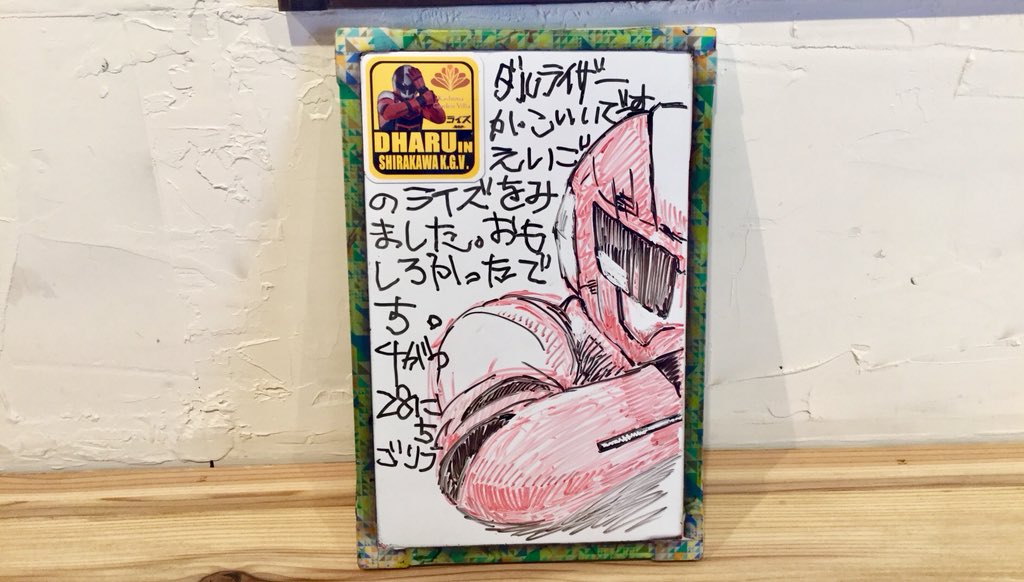 ダルライザー
かっこいいです
えいご
のライズをみ
ました。おも
しろかったで
す。
4がつ
28に
ち
ゴリブ
ライズ
DHARU IN
SHIRAKAWA K.G.V.